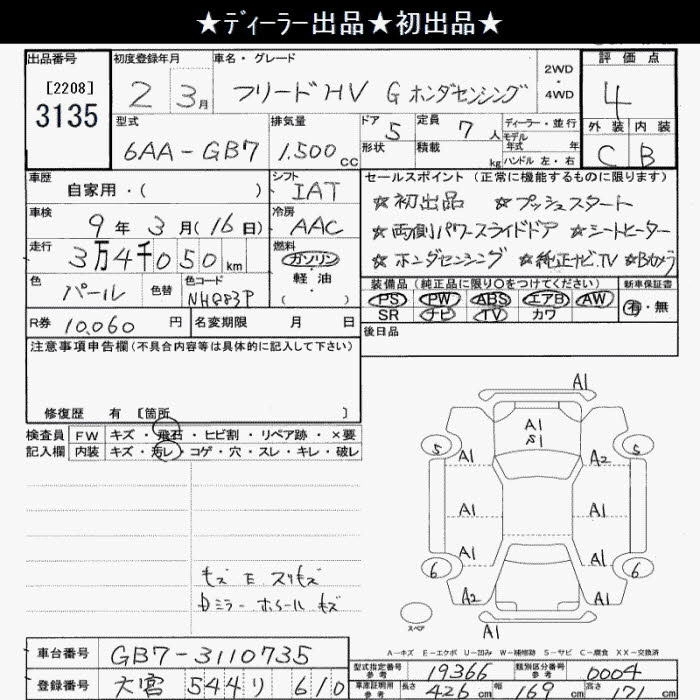 ★ディーラー出品★初出品★
出品番号 [2208] 3135
初度登録年月 2 3月
車名・グレード フリードHV G ホンダセンシング 2WD・4WD
評価点 4
型式 6AA-GB7
排気量 1.500cc
ドア 5 形状
定員 7人 積載 kg
ディーラー・並行 モデル年式 年 ハンドル 左・右
外装 C 内装 B
車歴 自家用・( )
シフト IAT
車検 9年3月(16日)
冷房 AAC
走行 3万4千050km
燃料 ガソリン・軽油( )
色 パール 色替 色コード NH883P
R券 10.060円 名変期限 月 日
セールスポイント(正常に機能するものに限ります)
☆初出品 ☆プッシュスタート
☆両側パワースライドドア ☆シートヒーター
☆ホンダセンシング ☆純正ナビ.TV ☆Bカメラ
装備品(純正品に限り○をつけてください) 新車保証書
PS PW ABS エアB AW 有・無
SR ナビ TV カワ
後日品
注意事項申告欄(不具合内容等は具体的に記入して下さい)
修復歴 有 [箇所 ]
検査員 FW キズ・飛石・ヒビ割・リペア跡・×要
記入欄 内装 キズ・汚レ・コゲ・穴・スレ・キレ・破レ
A1
A1
S1
5 A1 A2 5
A1 A1
A1 A1
6 6
A2 A1
スペア
A1
モズ E スリキズ
Dミラー ホイール キズ
A-キズ E-エクボ U-凹み W-補修跡 S-サビ C-腐食 XX-交換済
車台番号 GB7-3110735
型式指定番号 参考 19366 類別区分番号 参考 0004
登録番号 大宮 544 り 610
車庫証明用 参考 長さ 426cm 幅 169cm 高さ 171cm